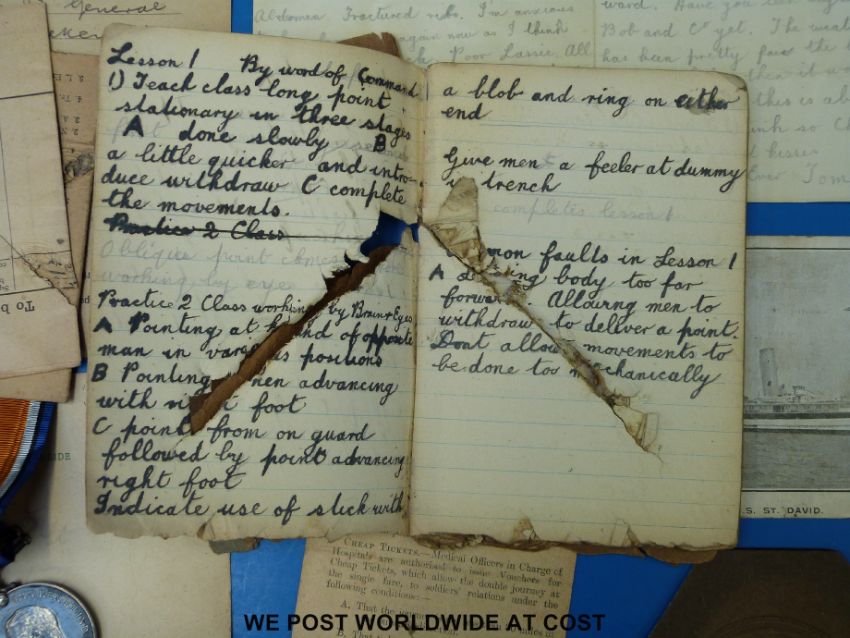 General
Abdomen. Fractured ribs. I'm anxious
again now as I think
Poor Lassie. All
ward. Have you
Bob and Co yet. The
has been pretty
this is
kisses
Ever Tom
Lesson 1 By word of Command
1) Teach class long point
stationary in three stages
A done slowly B
a little quicker and intro-
duce withdraw C complete
the movements.
Practice 2 Class
Oblique point comes
working by eye
Practice 2 Class working by Brain & Eyes
A Pointing at hand of opposite
man in various positions
B Pointing when advancing
with right foot
C point from on guard
followed by point advancing
right foot
Indicate use of stick with
a blob and ring on either
end
Give men a feeler at dummy
in trench
completes lesson 1
mon faults in Lesson 1
A body too far
forward. Allowing men to
withdraw to deliver a point.
Dont allow movements to
be done too mechanically
To b
IDE
S. ST. DAVID.
CHEAP TICKETS.—Medical Officers in Charge of
Hospitals are authorised to issue Vouchers for
Cheap Tickets, which allow the double journey at
the single fare, to soldiers' relations under the
following conditions:—
A. That the
B. That
WE POST WORLDWIDE AT COST